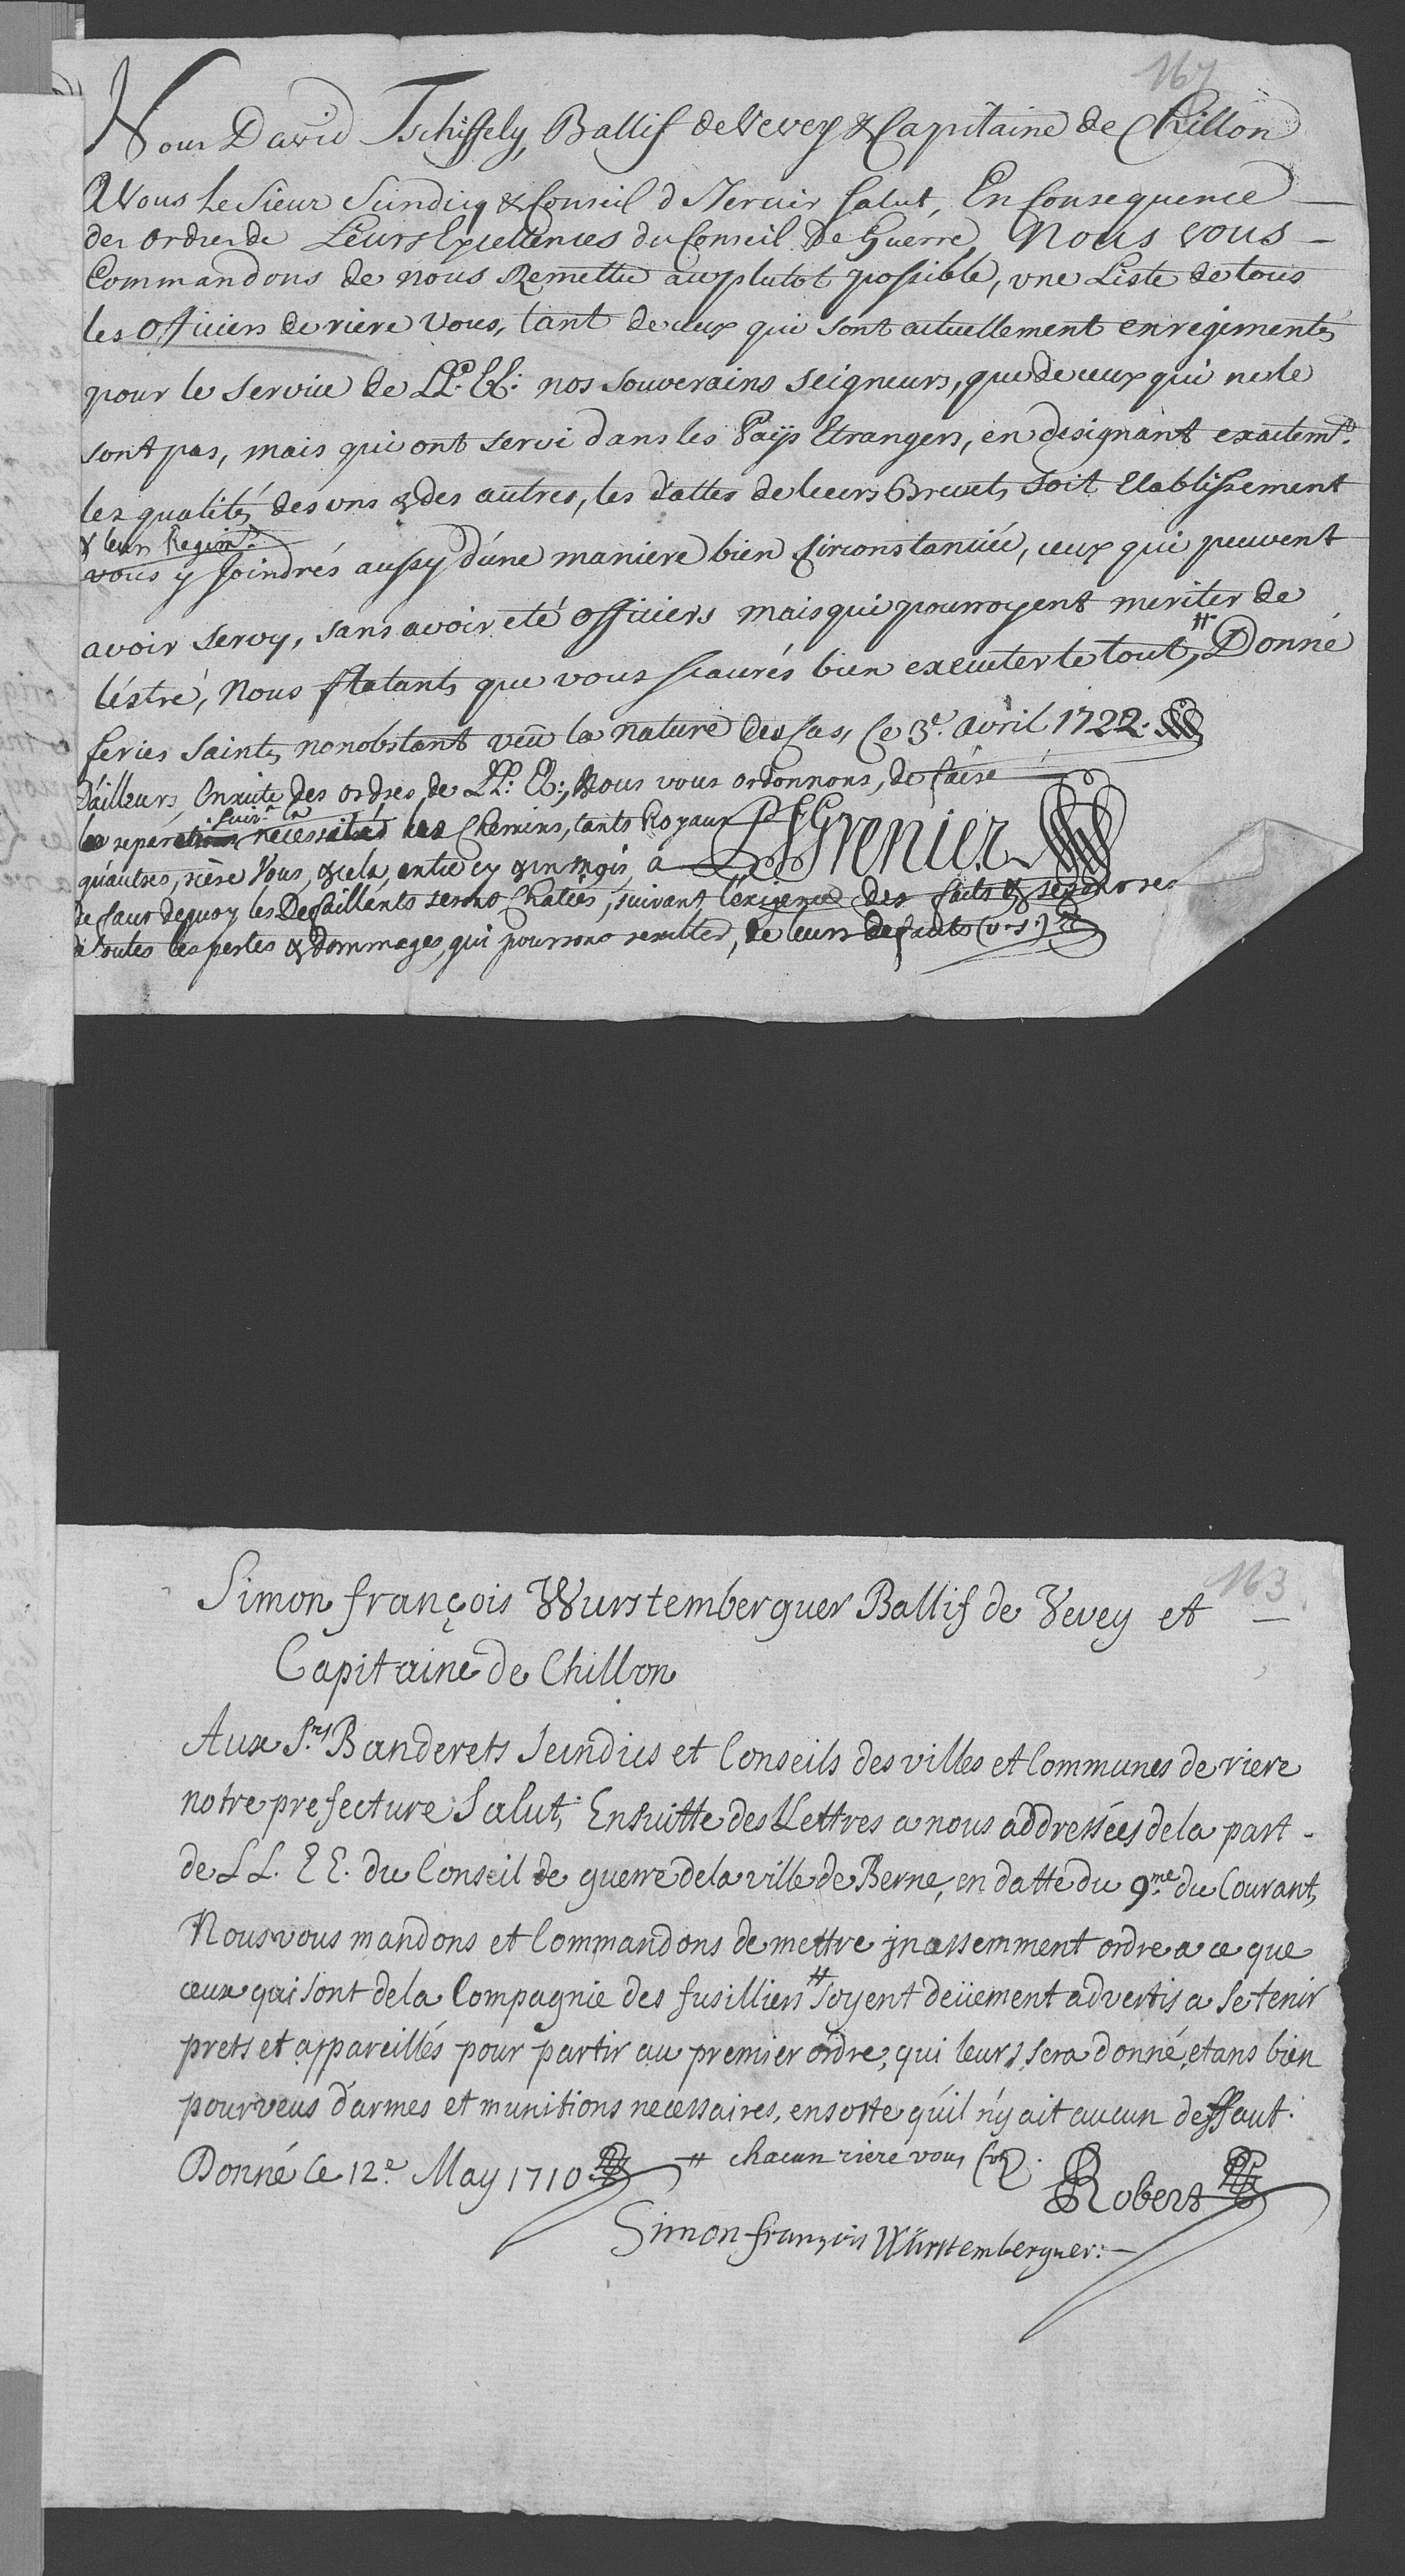 167
Nous David Tschiffely, Ballif de Vevey & Capitaine de Chillon
A Vous Le Sieur Seindicq & Conseil d Mervir salut, En Consequence
des ordres de Leurs Excellences du Conseil De Guerre, Nous vous
Commandons de nous Remettre au plutot possible, une Liste de tous
les officiers de riere Vous, tant de ceux qui sont actuellement enregimentés
pour le service de LL: EE: nos souverains seigneurs, que de ceux qui ne le
sont pas, mais qui ont servi dans les Païs Etrangers, en designant exactemt.
les qualités des uns & des autres, les dattes de leurs Brevets soit Etablissement
& leurs Regimt.
vous y joindrés aussy d'une maniere bien Circonstanciée, ceux qui peuvent
avoir servy, sans avoir eté officiers mais qui pourroyent meriter de
l'éstre, Nous flatants que vous scaurés bien executer le tout, # Donné
feries saints nonobstant veu la nature des Cas, Ce 3e. avril 1722.
D'ailleurs, Ensuite des ordres de LL: EE:, Nous vous ordonnons, de faire
suivt. la
les reparations necessaires les Chemins, tants Royaux
PFGrenier
qu'autres, riere Vous, & cela, entre cy & un mois, a
de faut dequoy les Defaillants seront Chatiés, suivant l'exigence des faits &
à toutes les pertes & dommages, qui pourront resulter, de leurs defauts (v.s.)
163
Simon françois Wurstemberguer Ballif de Vevey et
Capitaine de Chillon
Aux Srs. Banderets Seindics et Conseils des villes et Communes de riere
notre prefecture Salut; Ensuitte des Lettres a nous addressées de la part
de LL. EE. du Conseil de guerre de la ville de Berne, en datte du 9me. du Courant,
Nous vous mandons et Commandons de mettre jncessemment ordre a ce que
ceux qui sont de la Compagnie des fusilliers # soyent deüement advertis a se tenir
prets et appareillés pour partir au premier ordre, qui leurs sera donné, etans bien
pourveus d'armes et munitions necessaires, en sorte qu'il n'y ait aucun deffaut.
Donné Ce 12e May 1710
# chacun riere vous
Robert
Simon françois Würstemberguer: